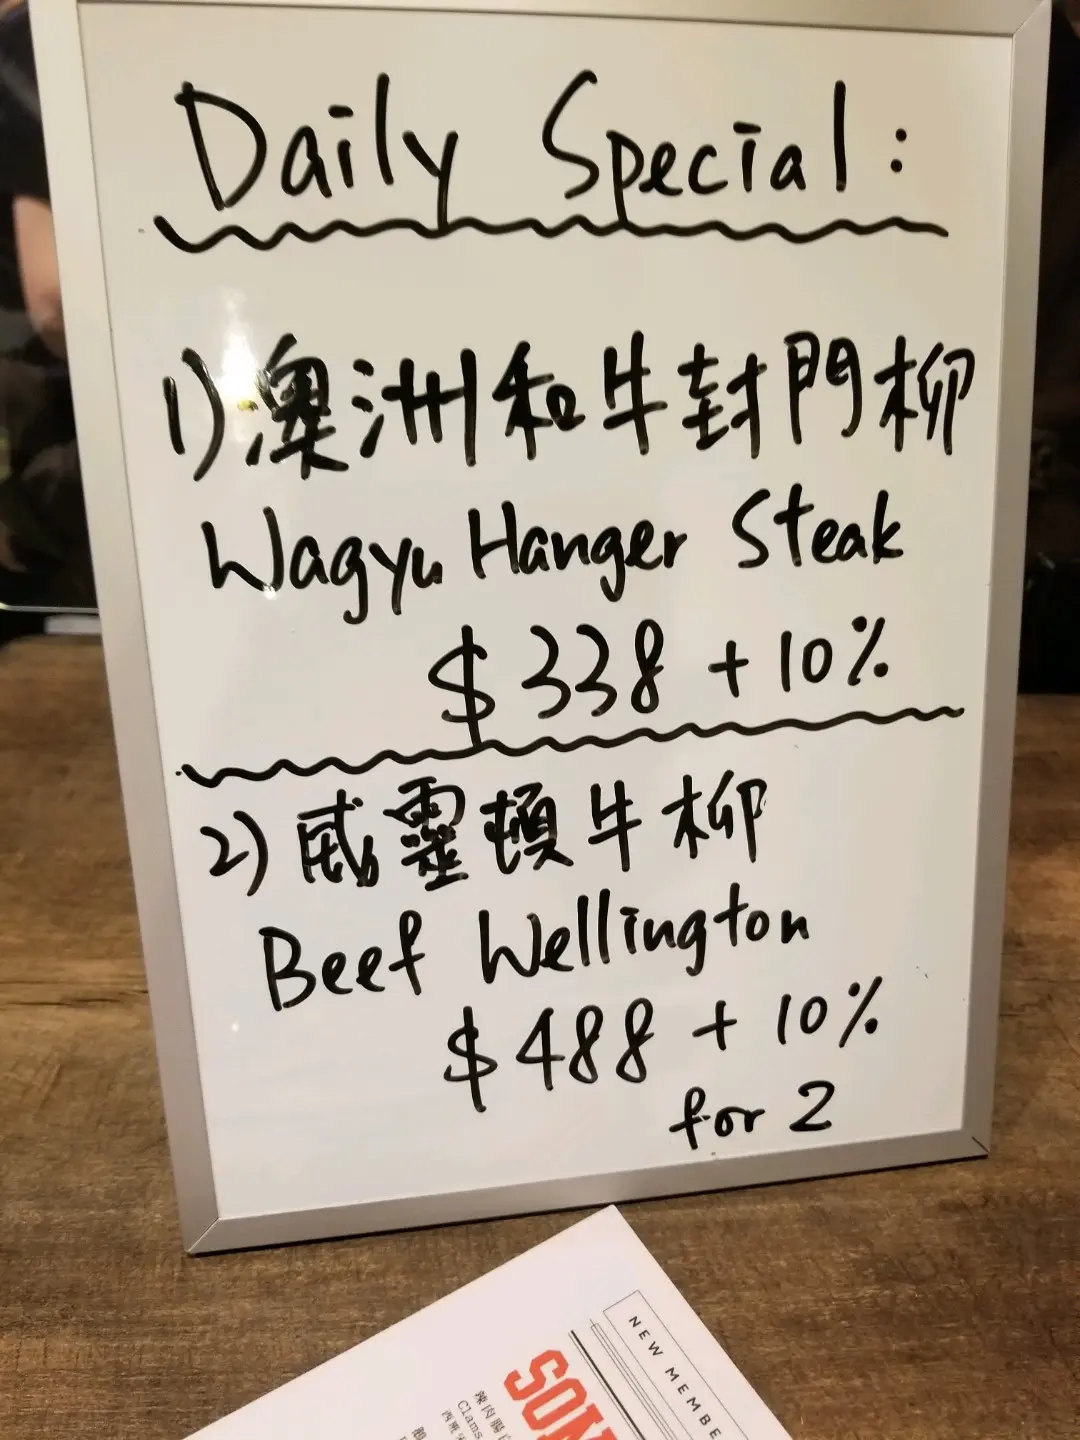 Daily Special:
1) 澳洲和牛封門柳
Wagyu Hanger Steak
$338 + 10%
2) 威靈頓牛柳
Beef Wellington
$488 + 10%
for 2
NEW MEMBE
SON
辣肉腸
Clams